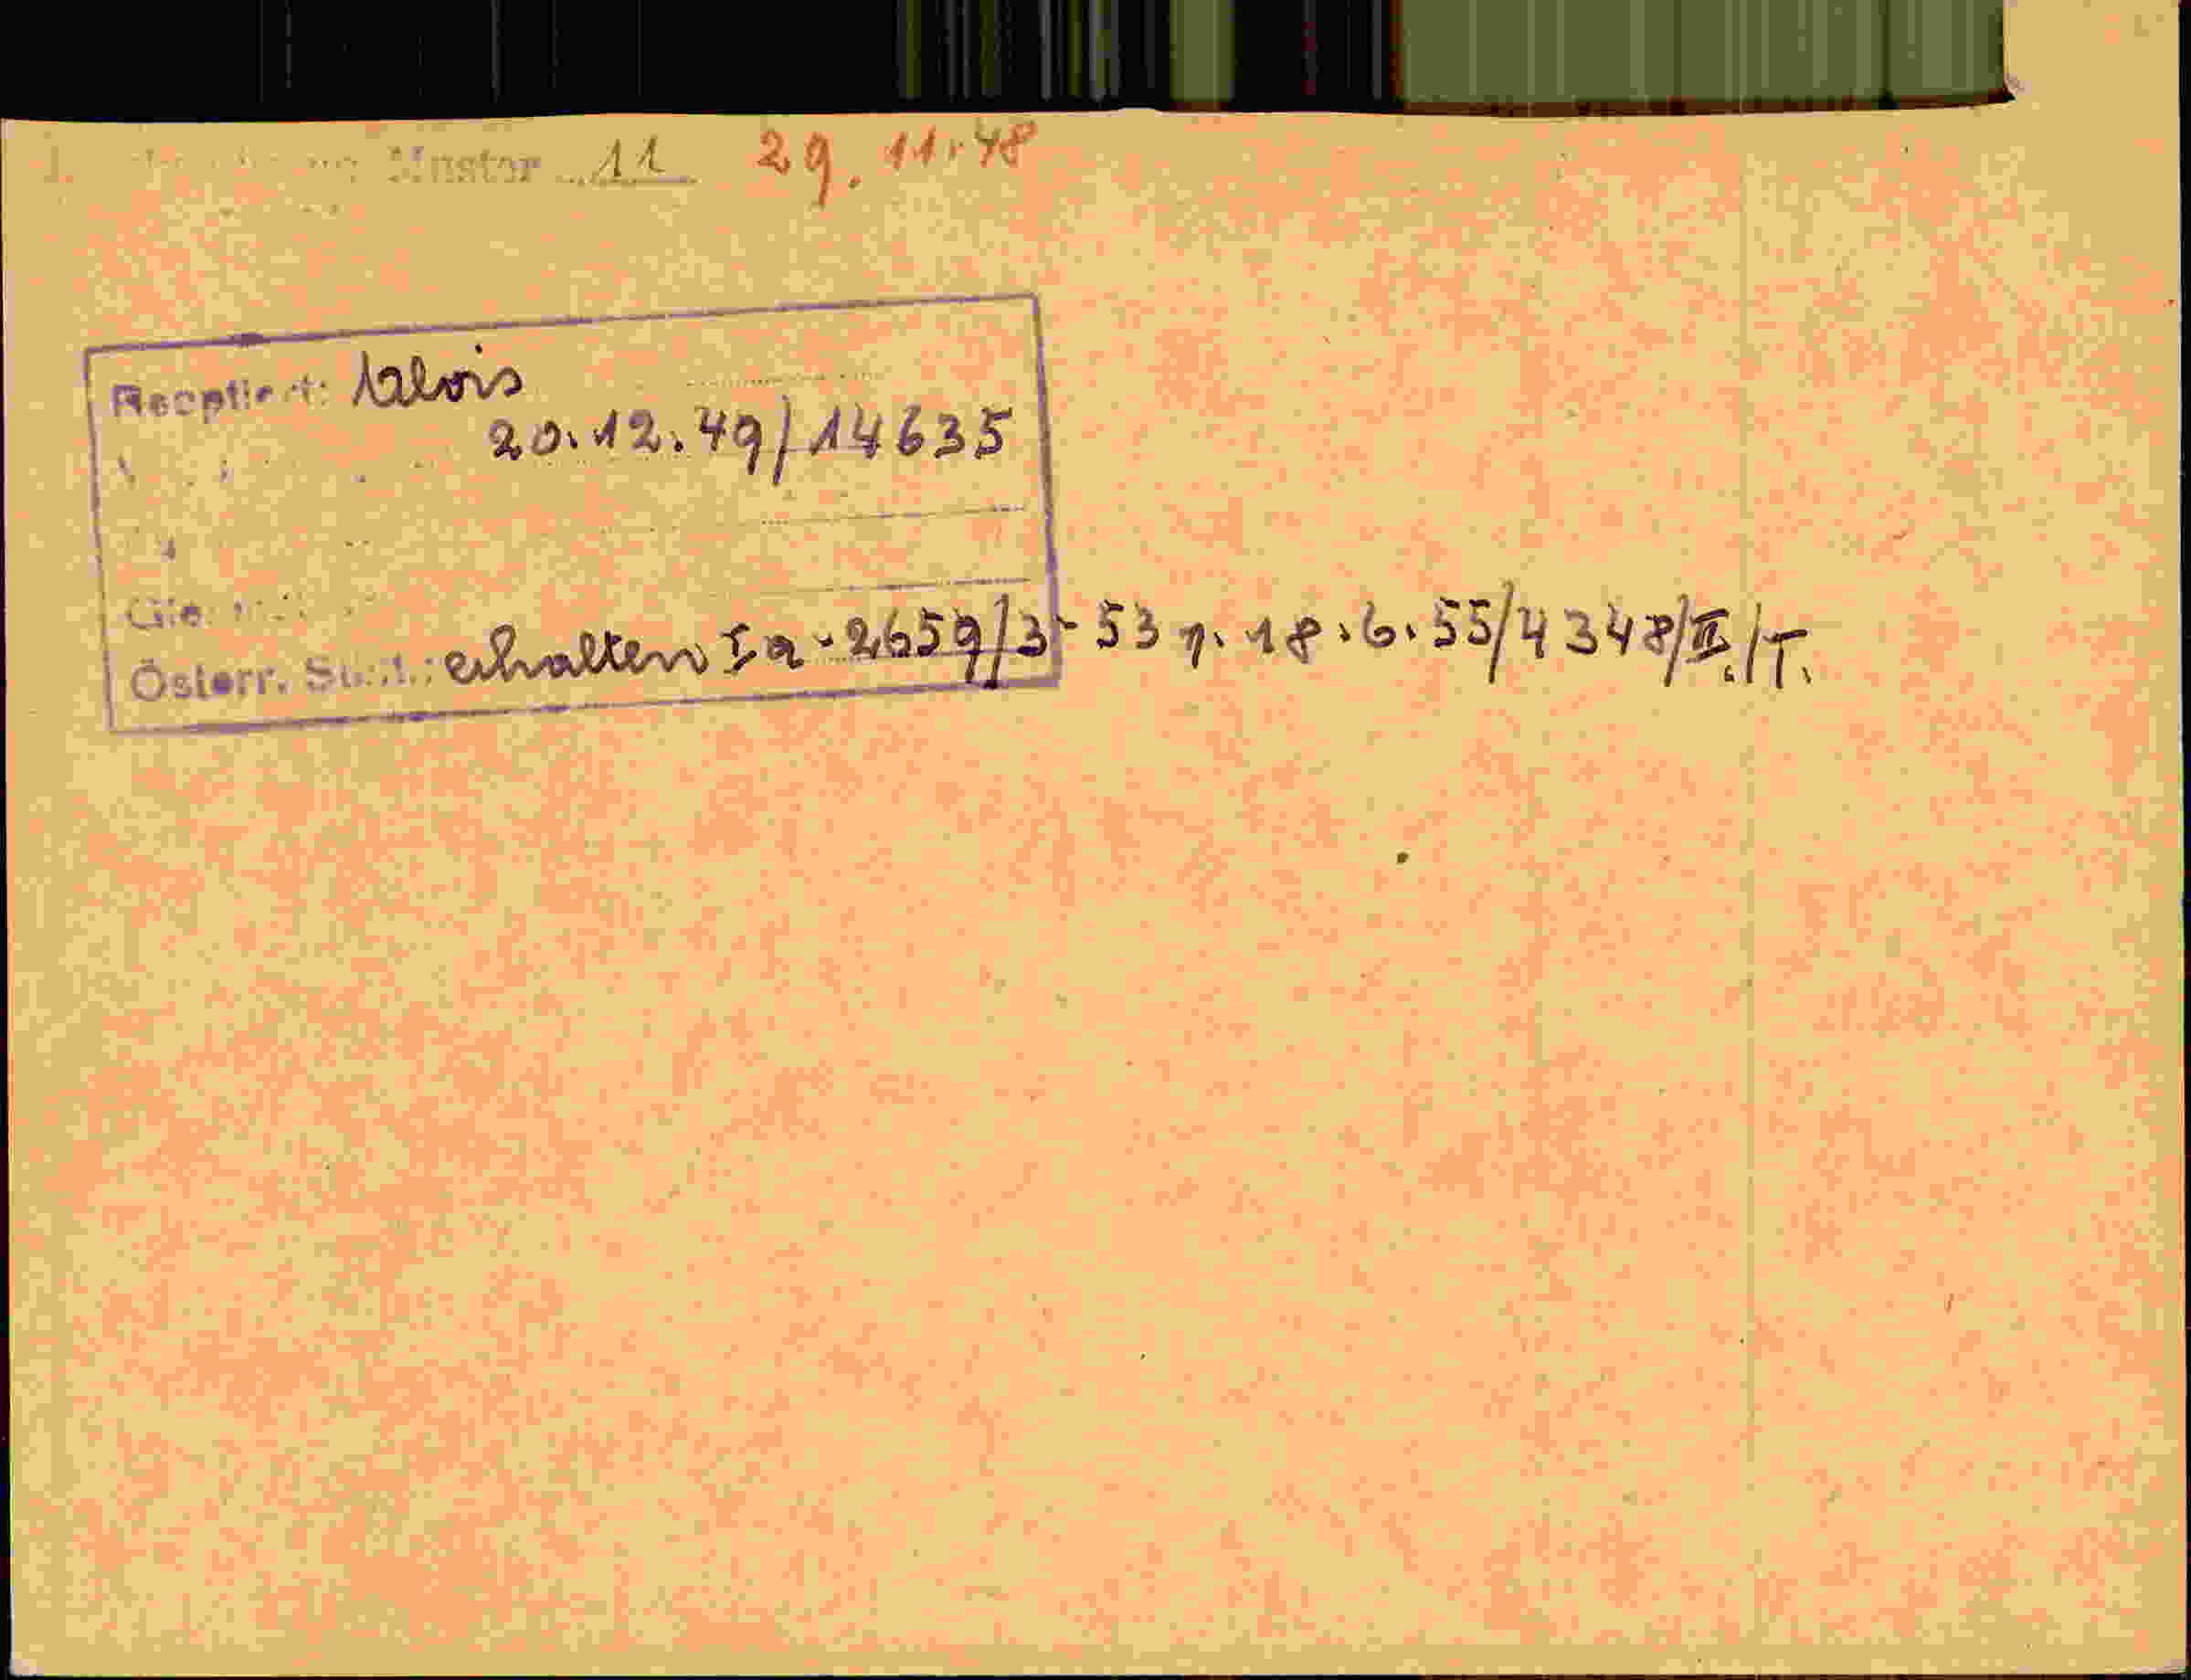 Muster 11 29. 11. 48
Reoptiert: Alois
20. 12. 49/14635
Österr. St.: erhalten Ia-2659/3-53 v. 18. 6. 55/4348/II./T.